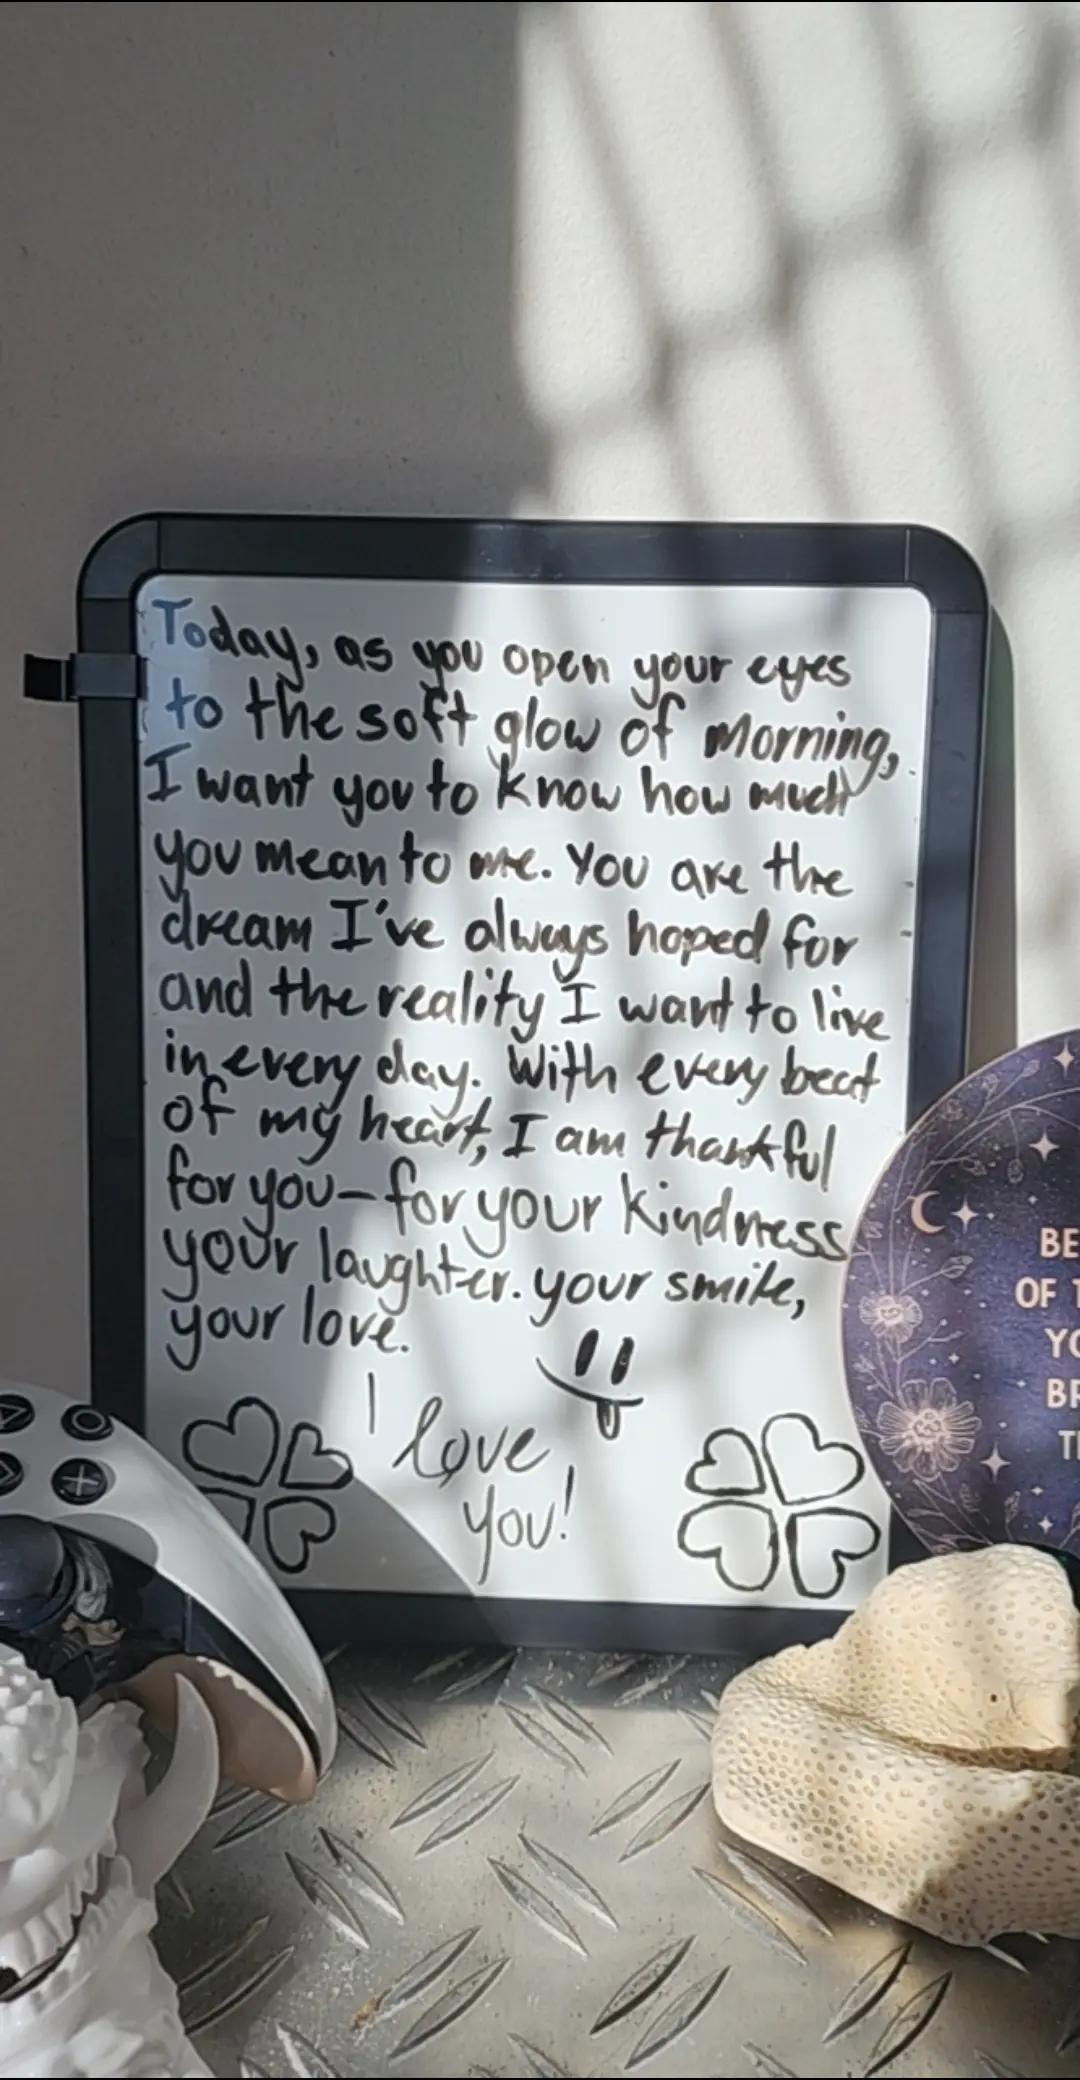 Today, as you open your eyes
to the soft glow of morning,
I want you to know how much
you mean to me. You are the
dream I've always hoped for
and the reality I want to live
in every day. With every beat
of my heart, I am thankful
for you—for your kindness
your laughter. your smile,
your love.
I love
you!
BE
OF T
YO
BR